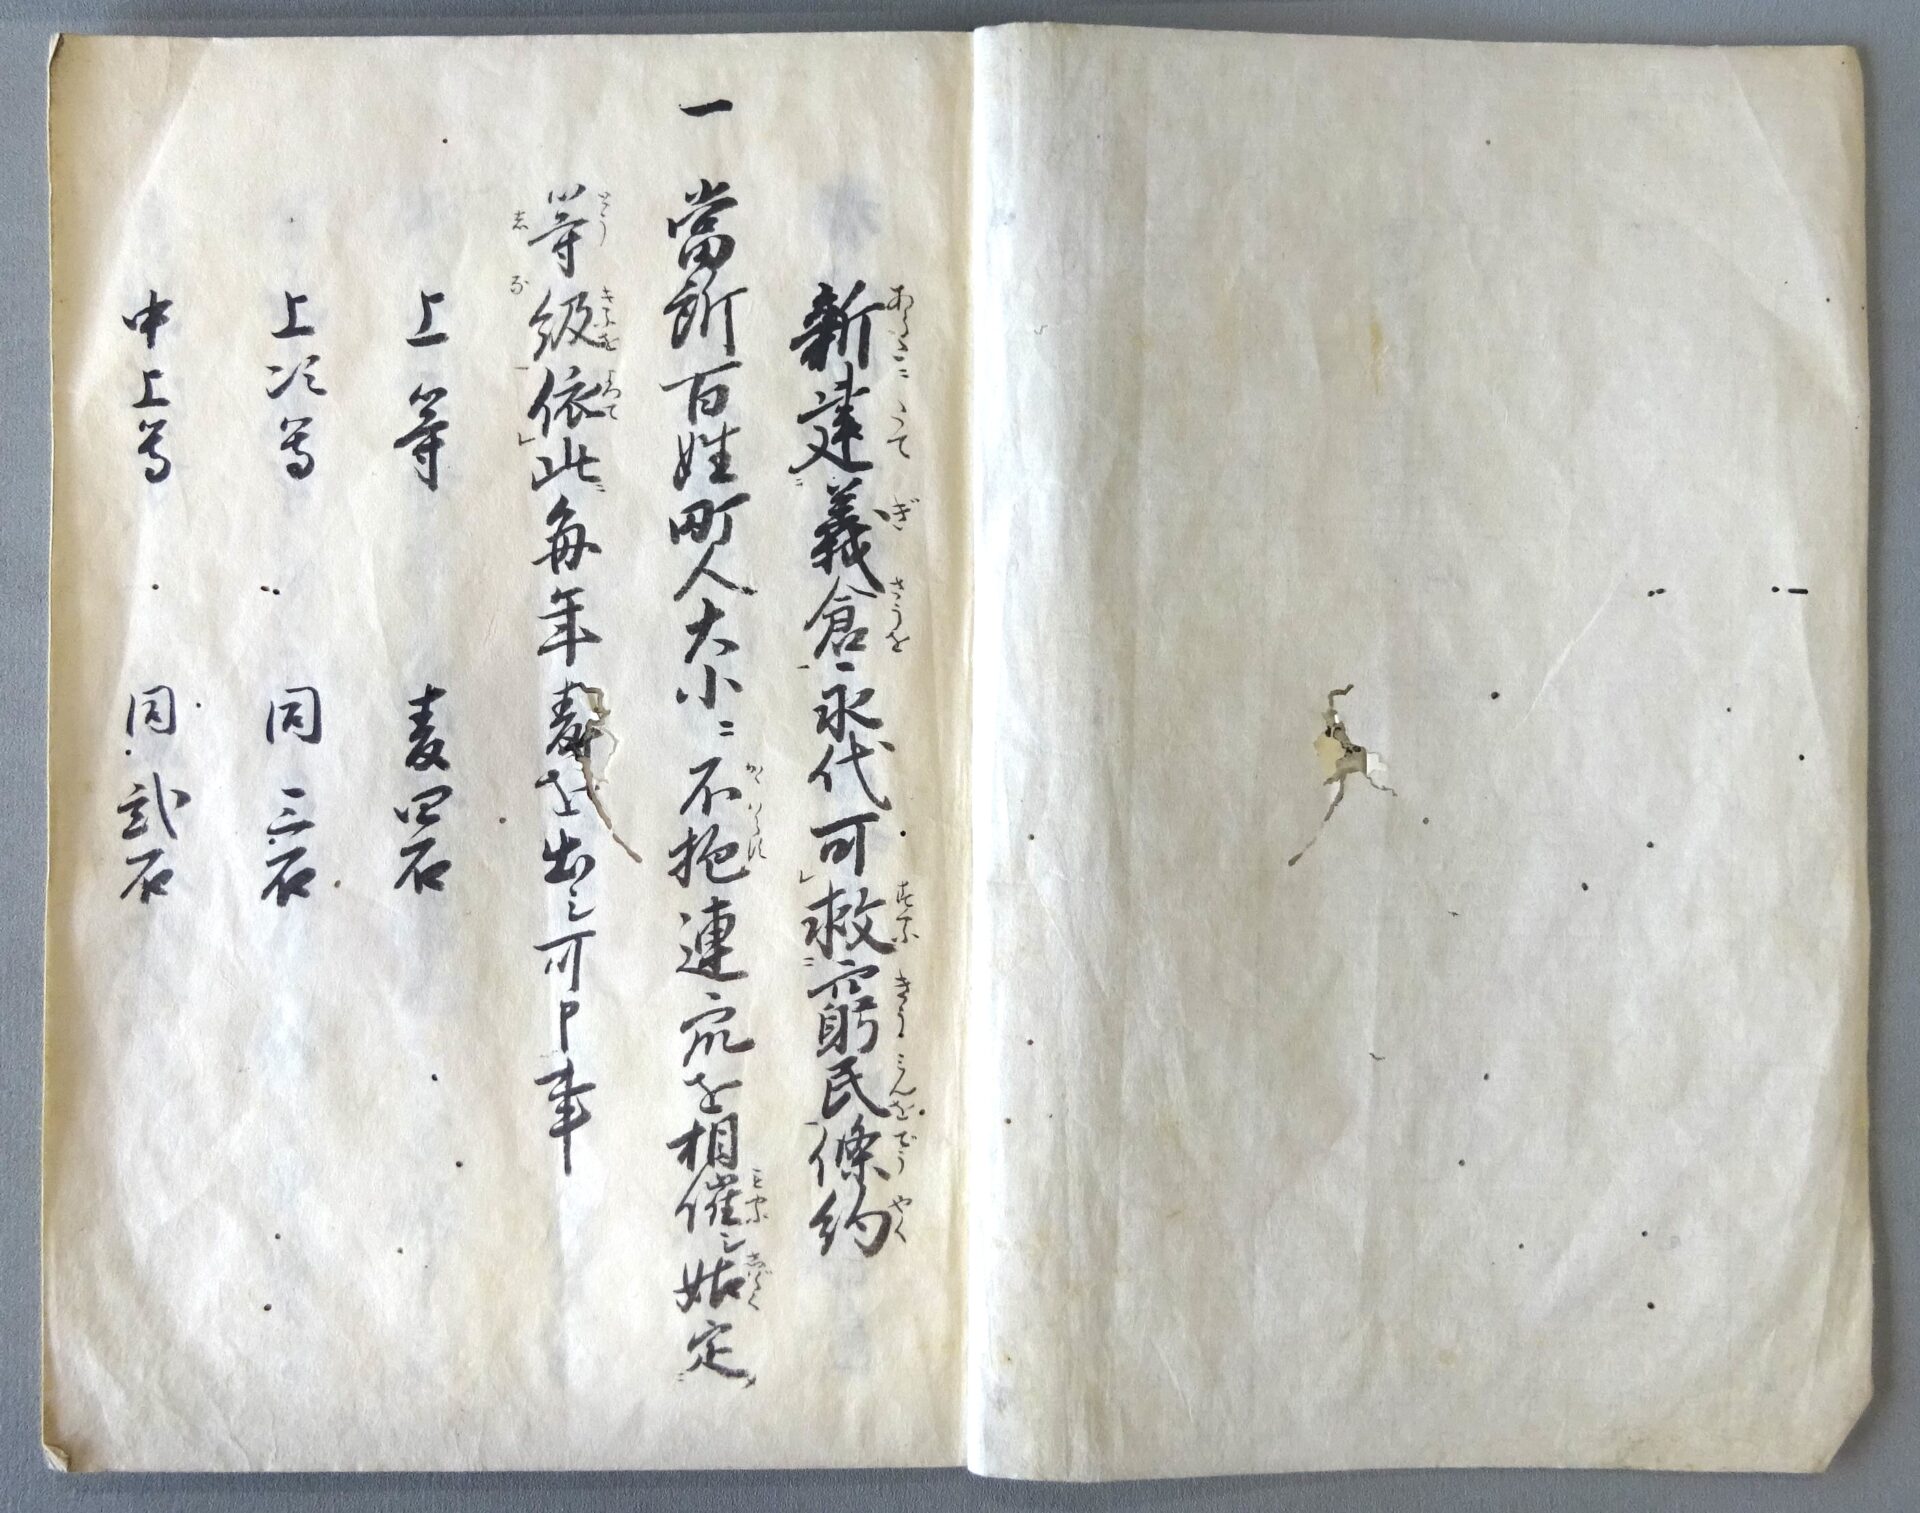 新建義倉永代可救窮民條約
一 當所百姓町人大小ニ不抱連衆を相催シ姑定
等級依此毎年麦を出シ可申事
上等 麦四石
上次等 同三石
中上等 同弐石